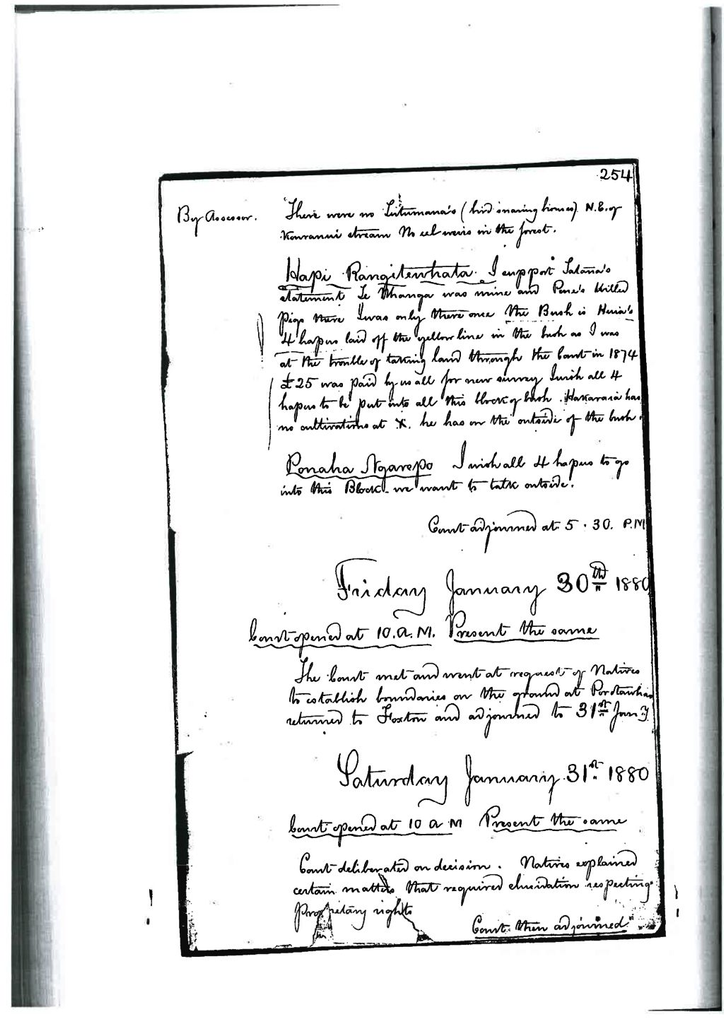 254
By Assessor. There were no Tutumana's (bird snaring houses) N.E. of
stream No eel weirs in the forest.
Hapi Rangitewhata. I support
statement Te Whanga was mine and Pene's killed
Pigs there I was only there once the Bush is Huia's
4 hapus laid off the yellow line in the bush as I was
at the trouble of taking land through the Court in 1874
£25 was paid by us all for new survey I wish all 4
hapus to be put into all this block of bush. Hakaraia has
no cultivations at X. he has on the outside of the bush.
Ponaha Ngaropo I wish all 4 hapus to go
into this Block we want to talk outside.
Court adjourned at 5.30. P.M
Friday January 30th 1880
Court opened at 10.A.M. Present the same
The Court met and went at request of Natives
to establish boundaries on the ground at
returned to Foxton and adjourned to 31st Jany
Saturday January 31st 1880
Court opened at 10 A M Present the same
Court deliberated on decision. Natives explained
certain matters that required elucidation respecting
proprietary rights
Court then adjourned